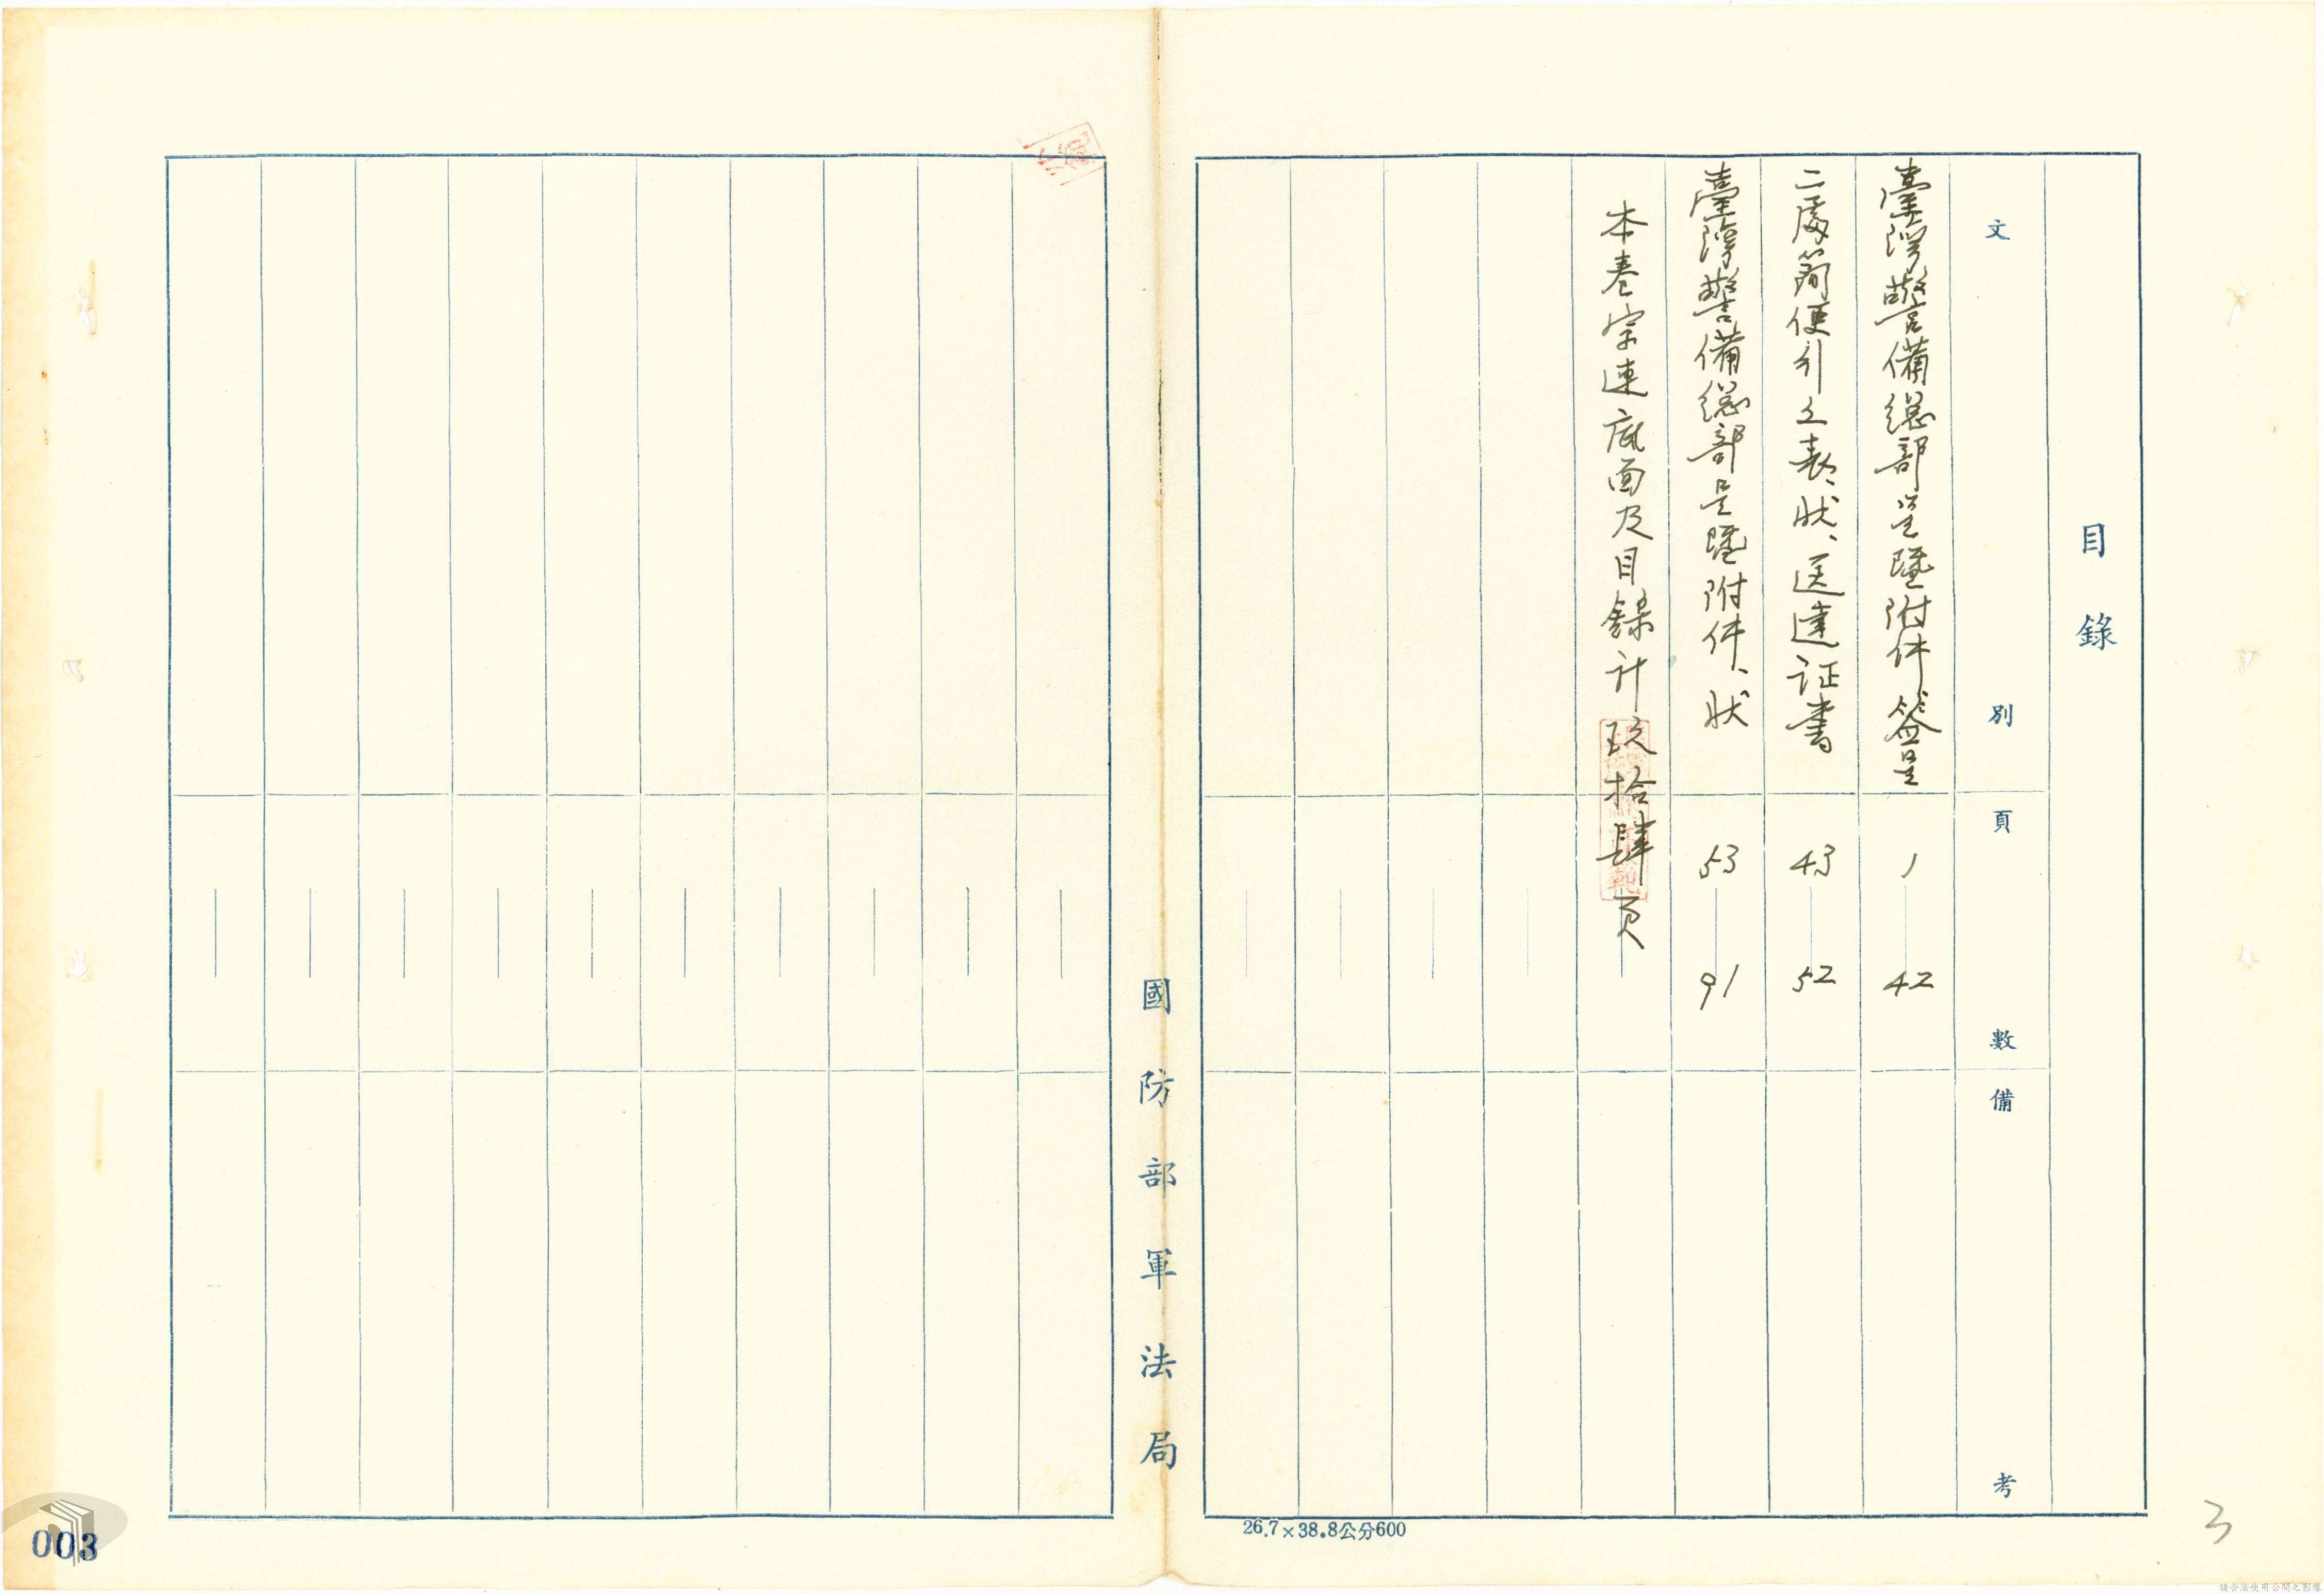 目錄
文別
頁數
備考
臺灣警備總部呈暨附件簽呈
1
42
二處簡便引文表、狀、送達证書
43
52
臺灣警備總部呈暨附件、狀
53
91
本卷宗連底面及目錄計玖拾肆頁
國防部軍法局
26.7×38.8公分600
3
003
請合法使用公開之影像